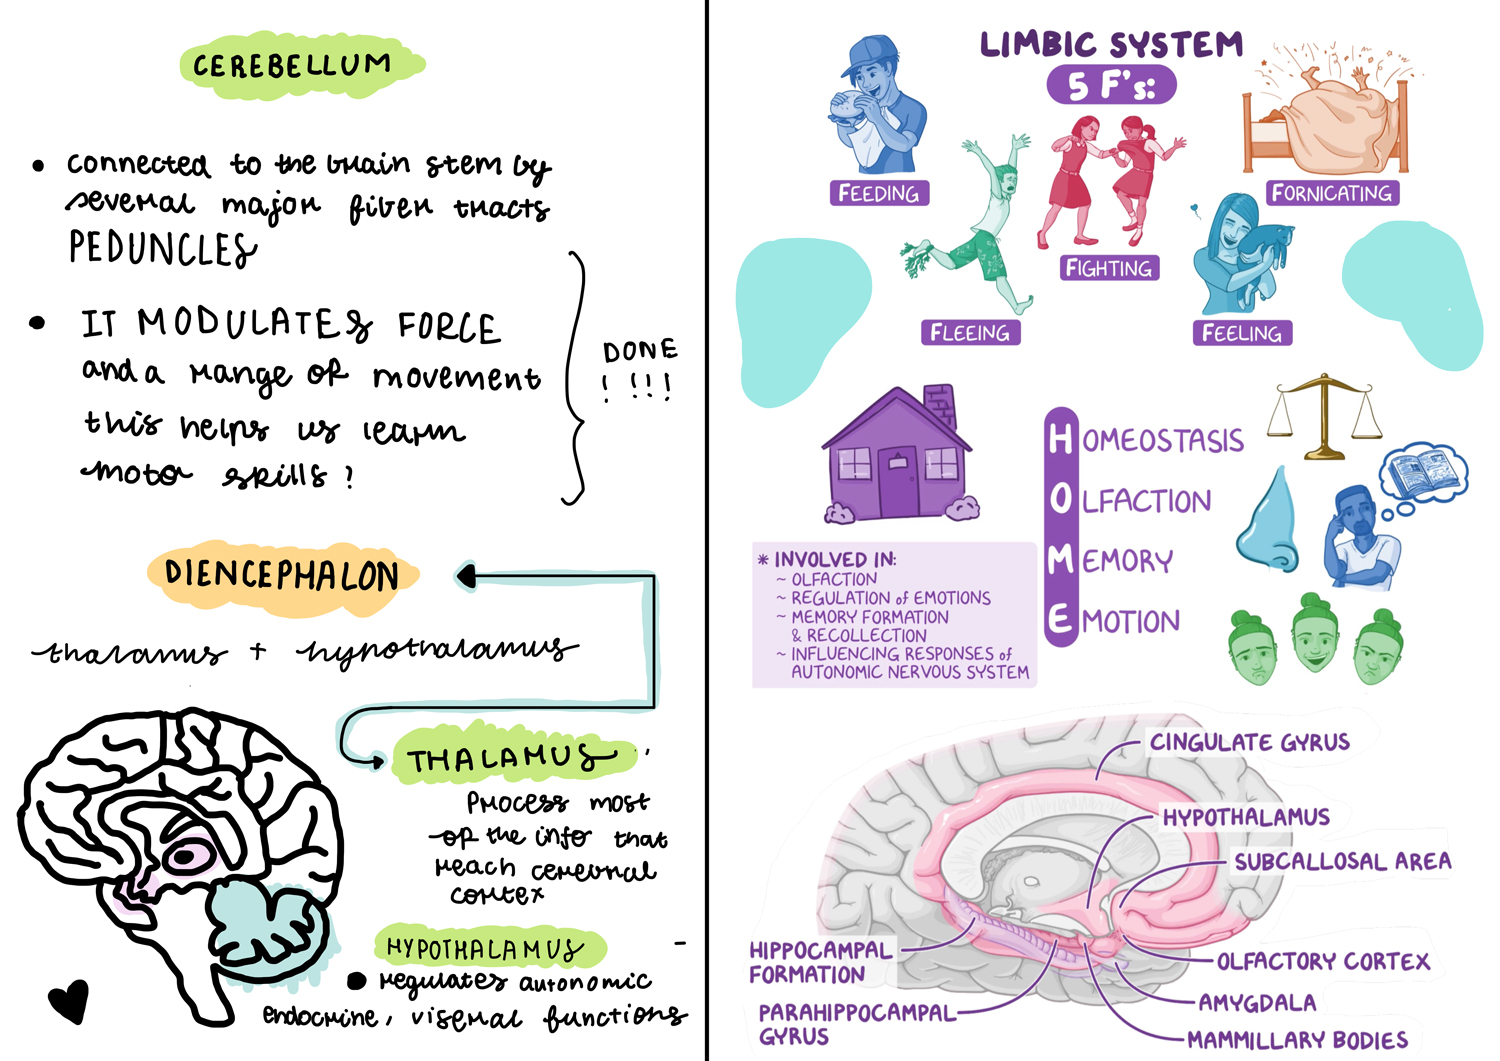 CEREBELLUM
• connected to the brain stem by
several major fiber tracts
PEDUNCLES
• IT MODULATES FORCE
and a range of movement
this helps us learn
motor skills?
DONE
! !!!
DIENCEPHALON
thalamus + hypothalamus
THALAMUS
Process most
of the info that
reach cerebral
cortex
HYPOTHALAMUS
• regulates autonomic
endocrine, viseral functions
LIMBIC SYSTEM
5 F's:
FEEDING
FLEEING
FIGHTING
FEELING
FORNICATING
HOMEOSTASIS
OLFACTION
MEMORY
EMOTION
* INVOLVED IN:
~ OLFACTION
~ REGULATION of EMOTIONS
~ MEMORY FORMATION
& RECOLLECTION
~ INFLUENCING RESPONSES of
AUTONOMIC NERVOUS SYSTEM
CINGULATE GYRUS
HYPOTHALAMUS
SUBCALLOSAL AREA
HIPPOCAMPAL
FORMATION
OLFACTORY CORTEX
AMYGDALA
PARAHIPPOCAMPAL
GYRUS
MAMMILLARY BODIES